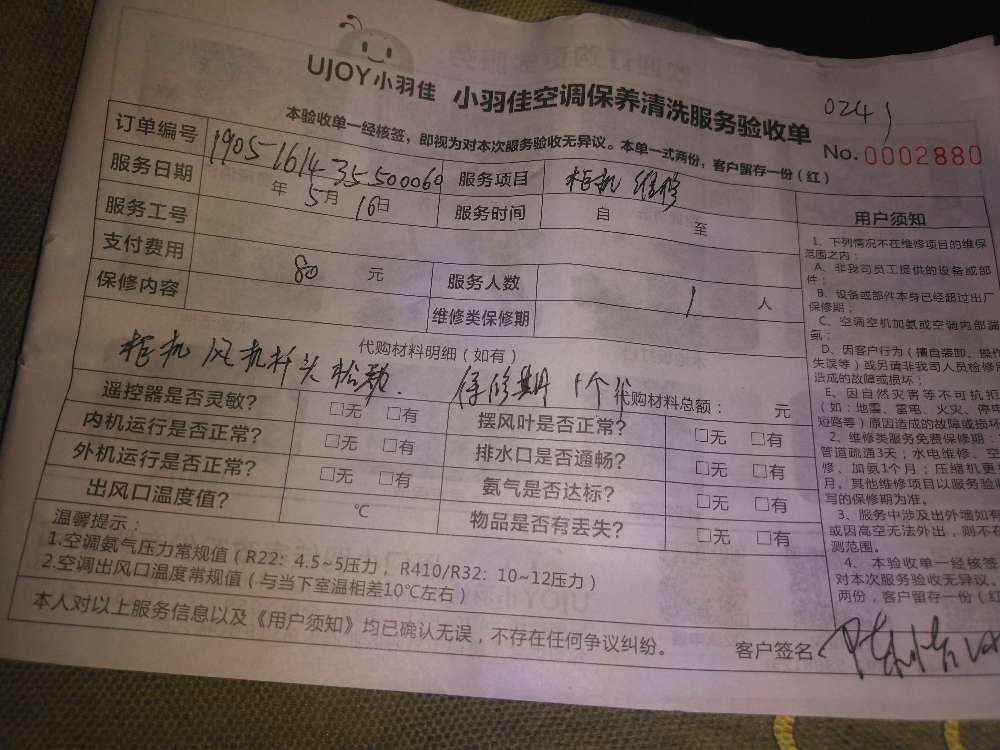 UJOY小羽佳 小羽佳空调保养清洗服务验收单
0241
本验收单一经核签，即视为对本次服务验收无异议。本单一式两份，客户留存一份（红）
No. 0002880
订单编号 1905161435500060 服务项目 柜机 维修
服务日期 年 5月 16日 服务时间 自 至
服务工号
支付费用 80 元 服务人数 1 人
保修内容 维修类保修期
代购材料明细（如有）
柜机 风机 保修期 1个
代购材料总额： 元
遥控器是否灵敏？ □无 □有 摆风叶是否正常？ □无 □有
内机运行是否正常？ □无 □有 排水口是否通畅？ □无 □有
外机运行是否正常？ □无 □有 氨气是否达标？ □无 □有
出风口温度值？ ℃ 物品是否有丢失？ □无 □有
温馨提示：
1.空调氨气压力常规值（R22：4.5~5压力，R410/R32：10~12压力）
2.空调出风口温度常规值（与当下室温相差10℃左右）
本人对以上服务信息以及《用户须知》均已确认无误，不存在任何争议纠纷。
客户签名
用户须知
1、下列情况不在维修项目的维保
范围之内：
A、非我司员工提供的设备或部
件；
B、设备或部件本身已经超过出厂
保修期；
C、空调空机加氨或空调内部漏
氨；
D、因客户行为（擅自装卸、操作
失误等）或另请非我司人员检修所
造成的故障或损坏；
E、因自然灾害等不可抗拒
（如：地震、雷电、火灾、停电
短路等）原因造成的故障或损坏
2、维修类服务免费保修期：
管道疏通3天；水电维修、空
修、加氨1个月；压缩机更
月。其他维修项目以服务验收
写的保修期为准。
3、服务中涉及出外墙如有
或因高空无法外出，则不在
测范围。
4、本验收单一经核签
对本次服务验收无异议。
两份，客户留存一份（红